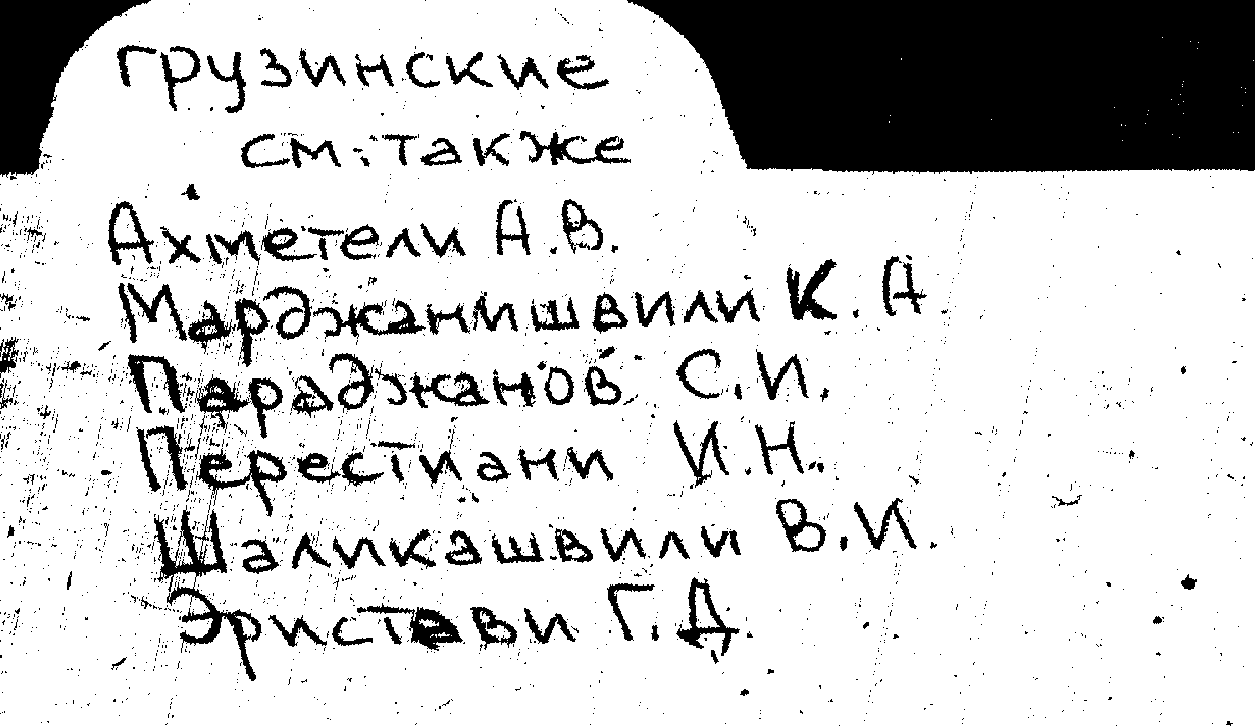 грузинские
см. также
Ахметели А.В.
Марджанишвили К.А
Параджанов С.И.
Перестиани И.Н.
Шаликашвили В.И.
Эристави Г.Д.